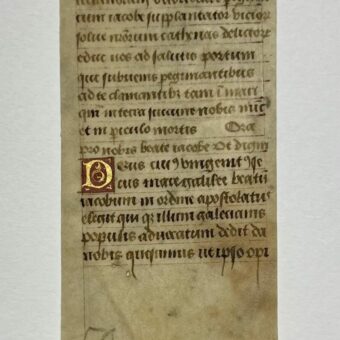 cum iacobe supplantator victor
solue nostrorum cathenas delictorum
educ nos ad salutis portum
qui subuenis peregrinantibus
ad te clamantibus tam in mari
quam in terra succurre nobis nunc
et in periculo mortis Ora
pro nobis beate iacobe Ut digni
Deus cuius unigenitus se
cus mare galilee beatum
iacobum in ordine apostolatus
elegit qui per illum galecianis
populis aduocatum dedit da
nobis quesumus ut ipso opi